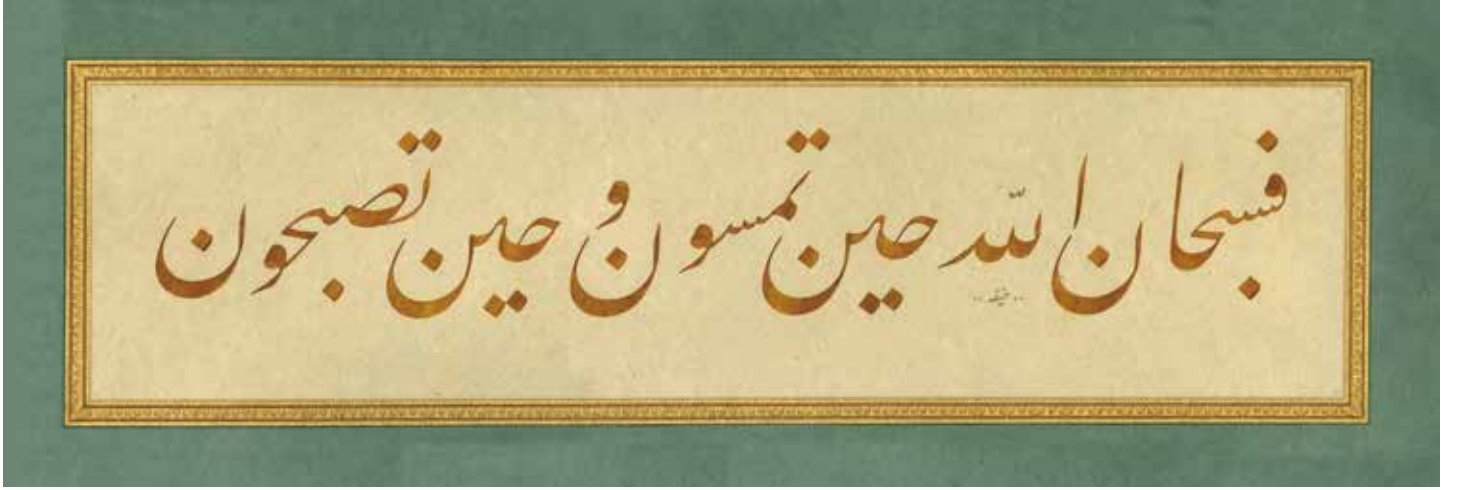 فسبحان الله حين تمسون و حين تصبحون